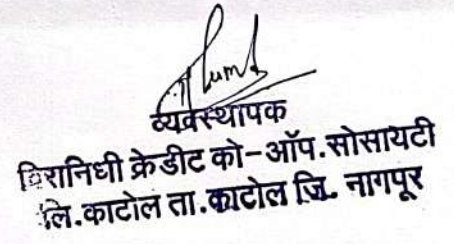 व्यवस्थापक
क्रेडीट को-ऑप.सोसायटी
लि.काटोल ता.काटोल जि. नागपूर